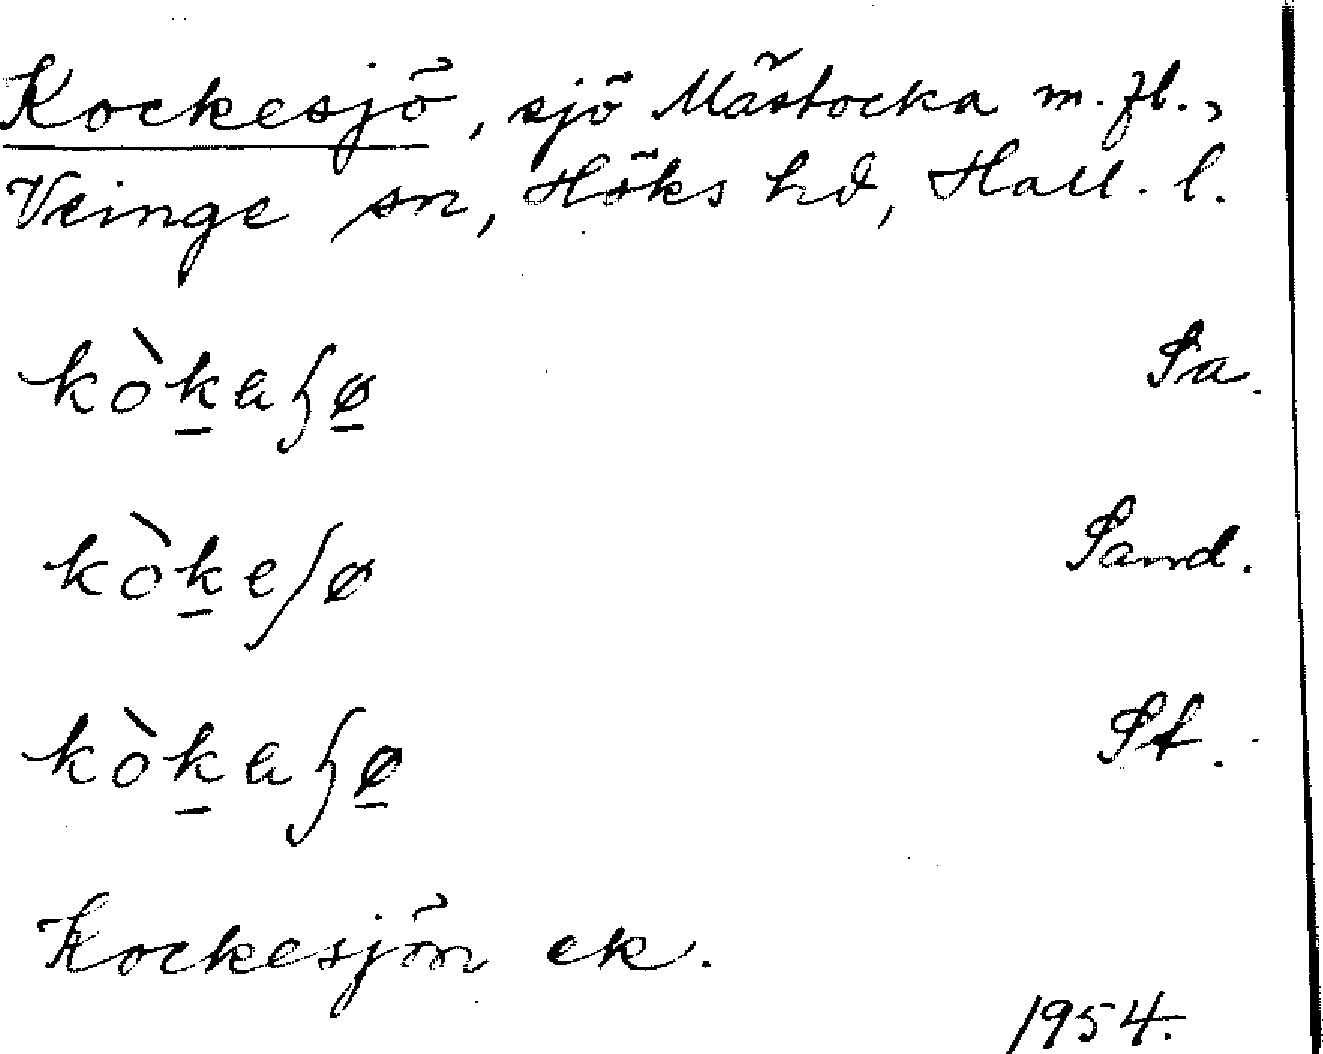 Kockesjö, sjö Mästocka m.fl.,
Veinge sn, Höks hd, Hall. l.
kòkaɧø Sa.
kòkeʃø Sand.
kòkaɧø St.
Kockesjön ek.
1954.